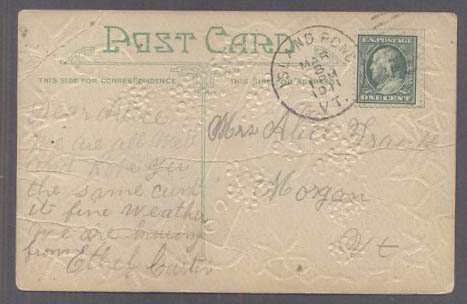 POST CARD
THIS SIDE FOR CORRESPONDENCE
THIS SIDE FOR ADDRESS
ISLAND POND
MAR
1911
VT.
U.S. POSTAGE
ONE CENT
Dear
we are all well
and hope you
the same
it fine weather
we are having
from
Ethel Curtis
Mrs Alice
Morgan
Vt